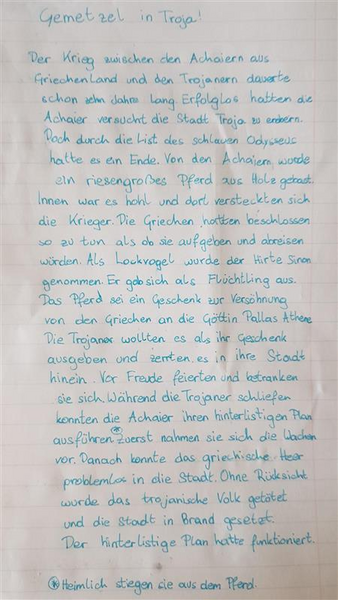 Gemetzel in Troja!
Der Krieg zwischen den Achaiern aus
Griechenland und den Trojanern dauerte
schon zehn Jahre lang. Erfolglos hatten die
Achaier versucht die Stadt Troja zu erobern.
Doch durch die List des schlauen Odysseus
hatte es ein Ende. Von den Achaiern wurde
ein riesengroßes Pferd aus Holz gebaut.
Innen war es hohl und dort versteckten sich
die Krieger. Die Griechen hatten beschlossen
so zu tun als ob sie aufgeben und abreisen
würden. Als Lockvogel wurde der Hirte Sinon
genommen. Er gab sich als Flüchtling aus.
Das Pferd sei ein Geschenk zur Versöhnung
von den Griechen an die Göttin Pallas Athene
Die Trojaner wollten es als ihr Geschenk
ausgeben und zerrten es in ihre Stadt
hinein. Vor Freude feierten und betranken
sie sich. Während die Trojaner schliefen
konnten die Achaier ihren hinterlistigen Plan
ausführen. * Zuerst nahmen sie sich die Wachen
vor. Danach konnte das griechische Heer
problemlos in die Stadt. Ohne Rücksicht
wurde das trojanische Volk getötet
und die Stadt in Brand gesetzt.
Der hinterlistige Plan hatte funktioniert.
* Heimlich stiegen sie aus dem Pferd.